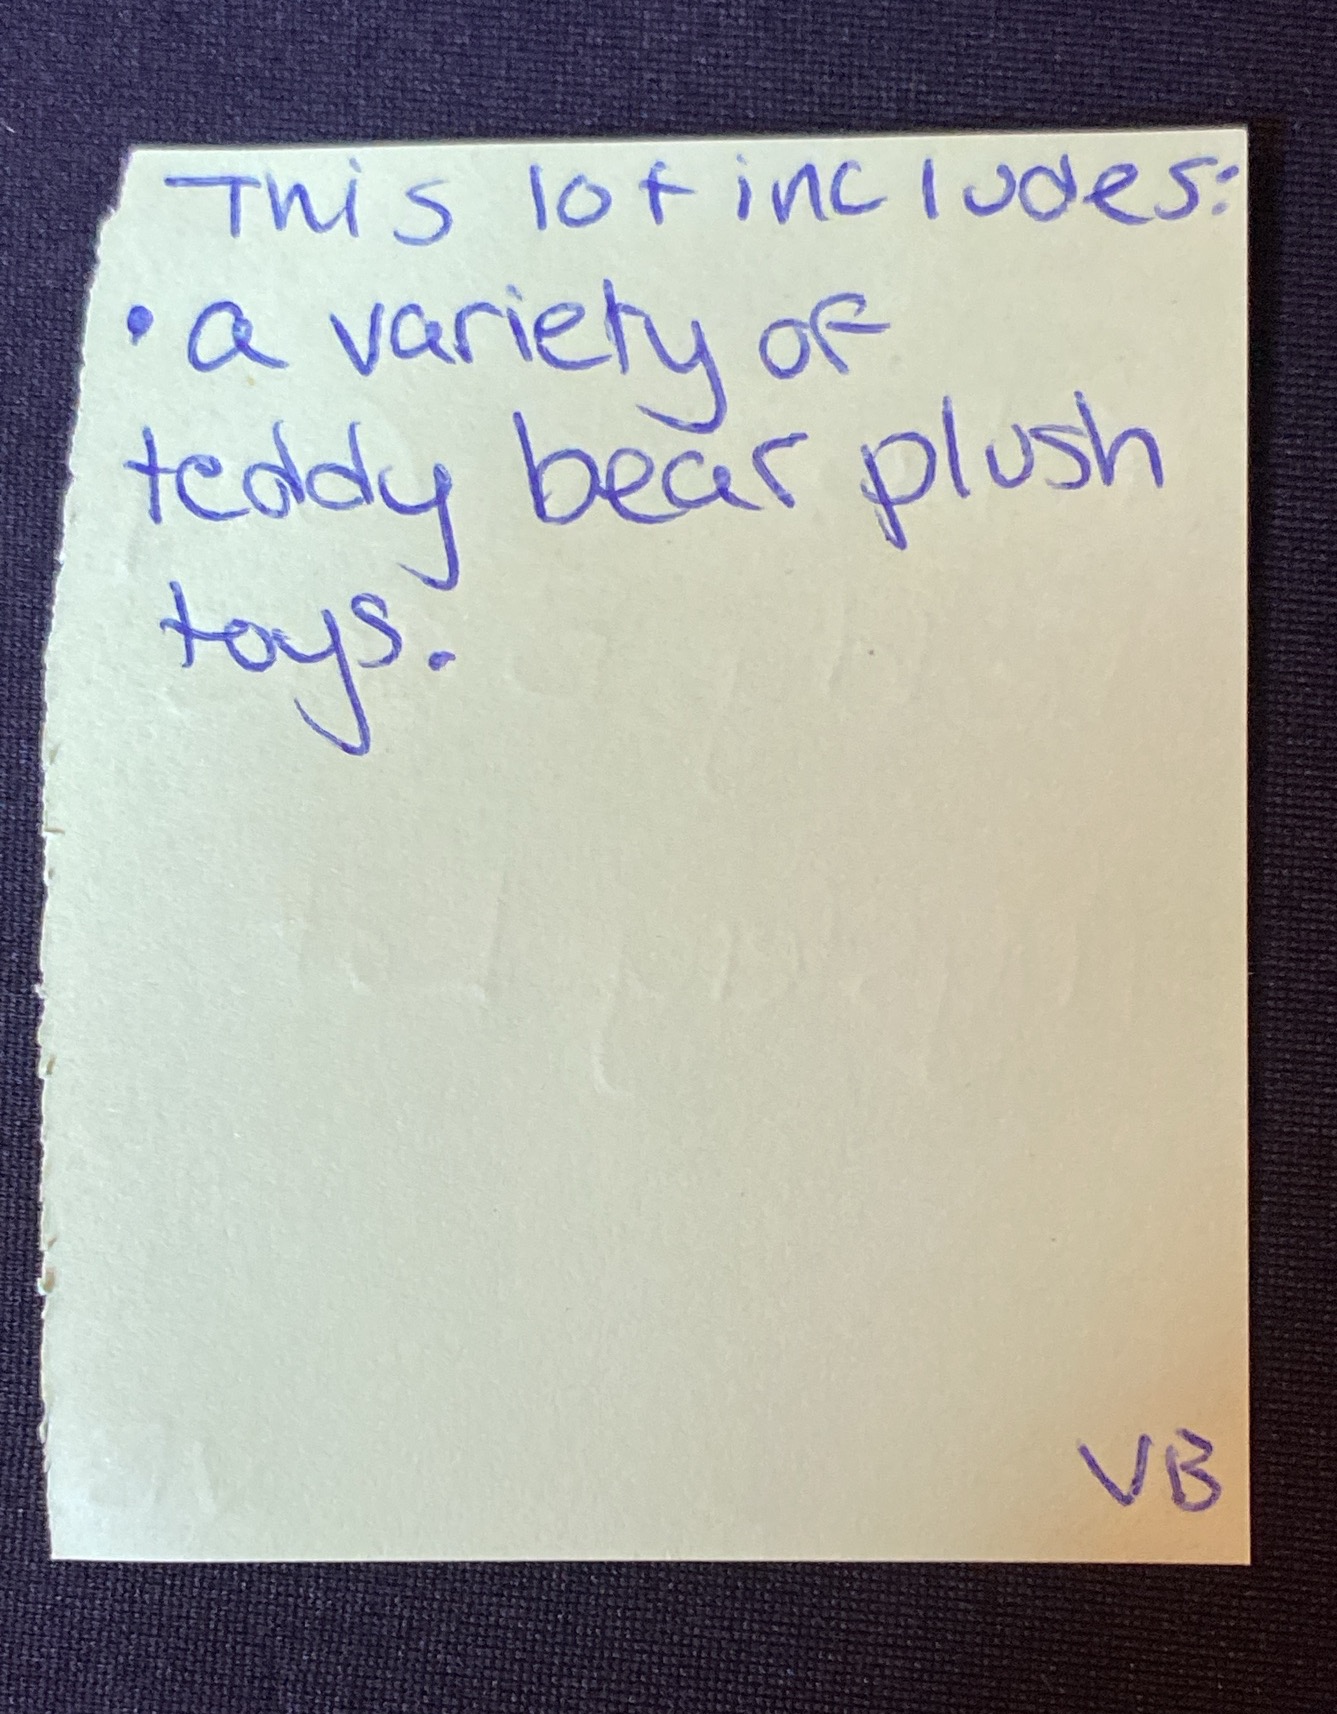 This lot includes:
• a variety of
teddy bear plush
toys.
VB